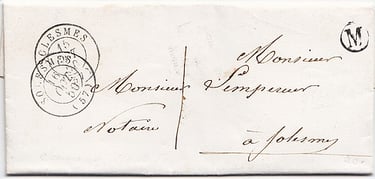 SOLESMES
15
(57)
M
Monsieur
Monsieur Lempereur
Notaire
à Solesmes